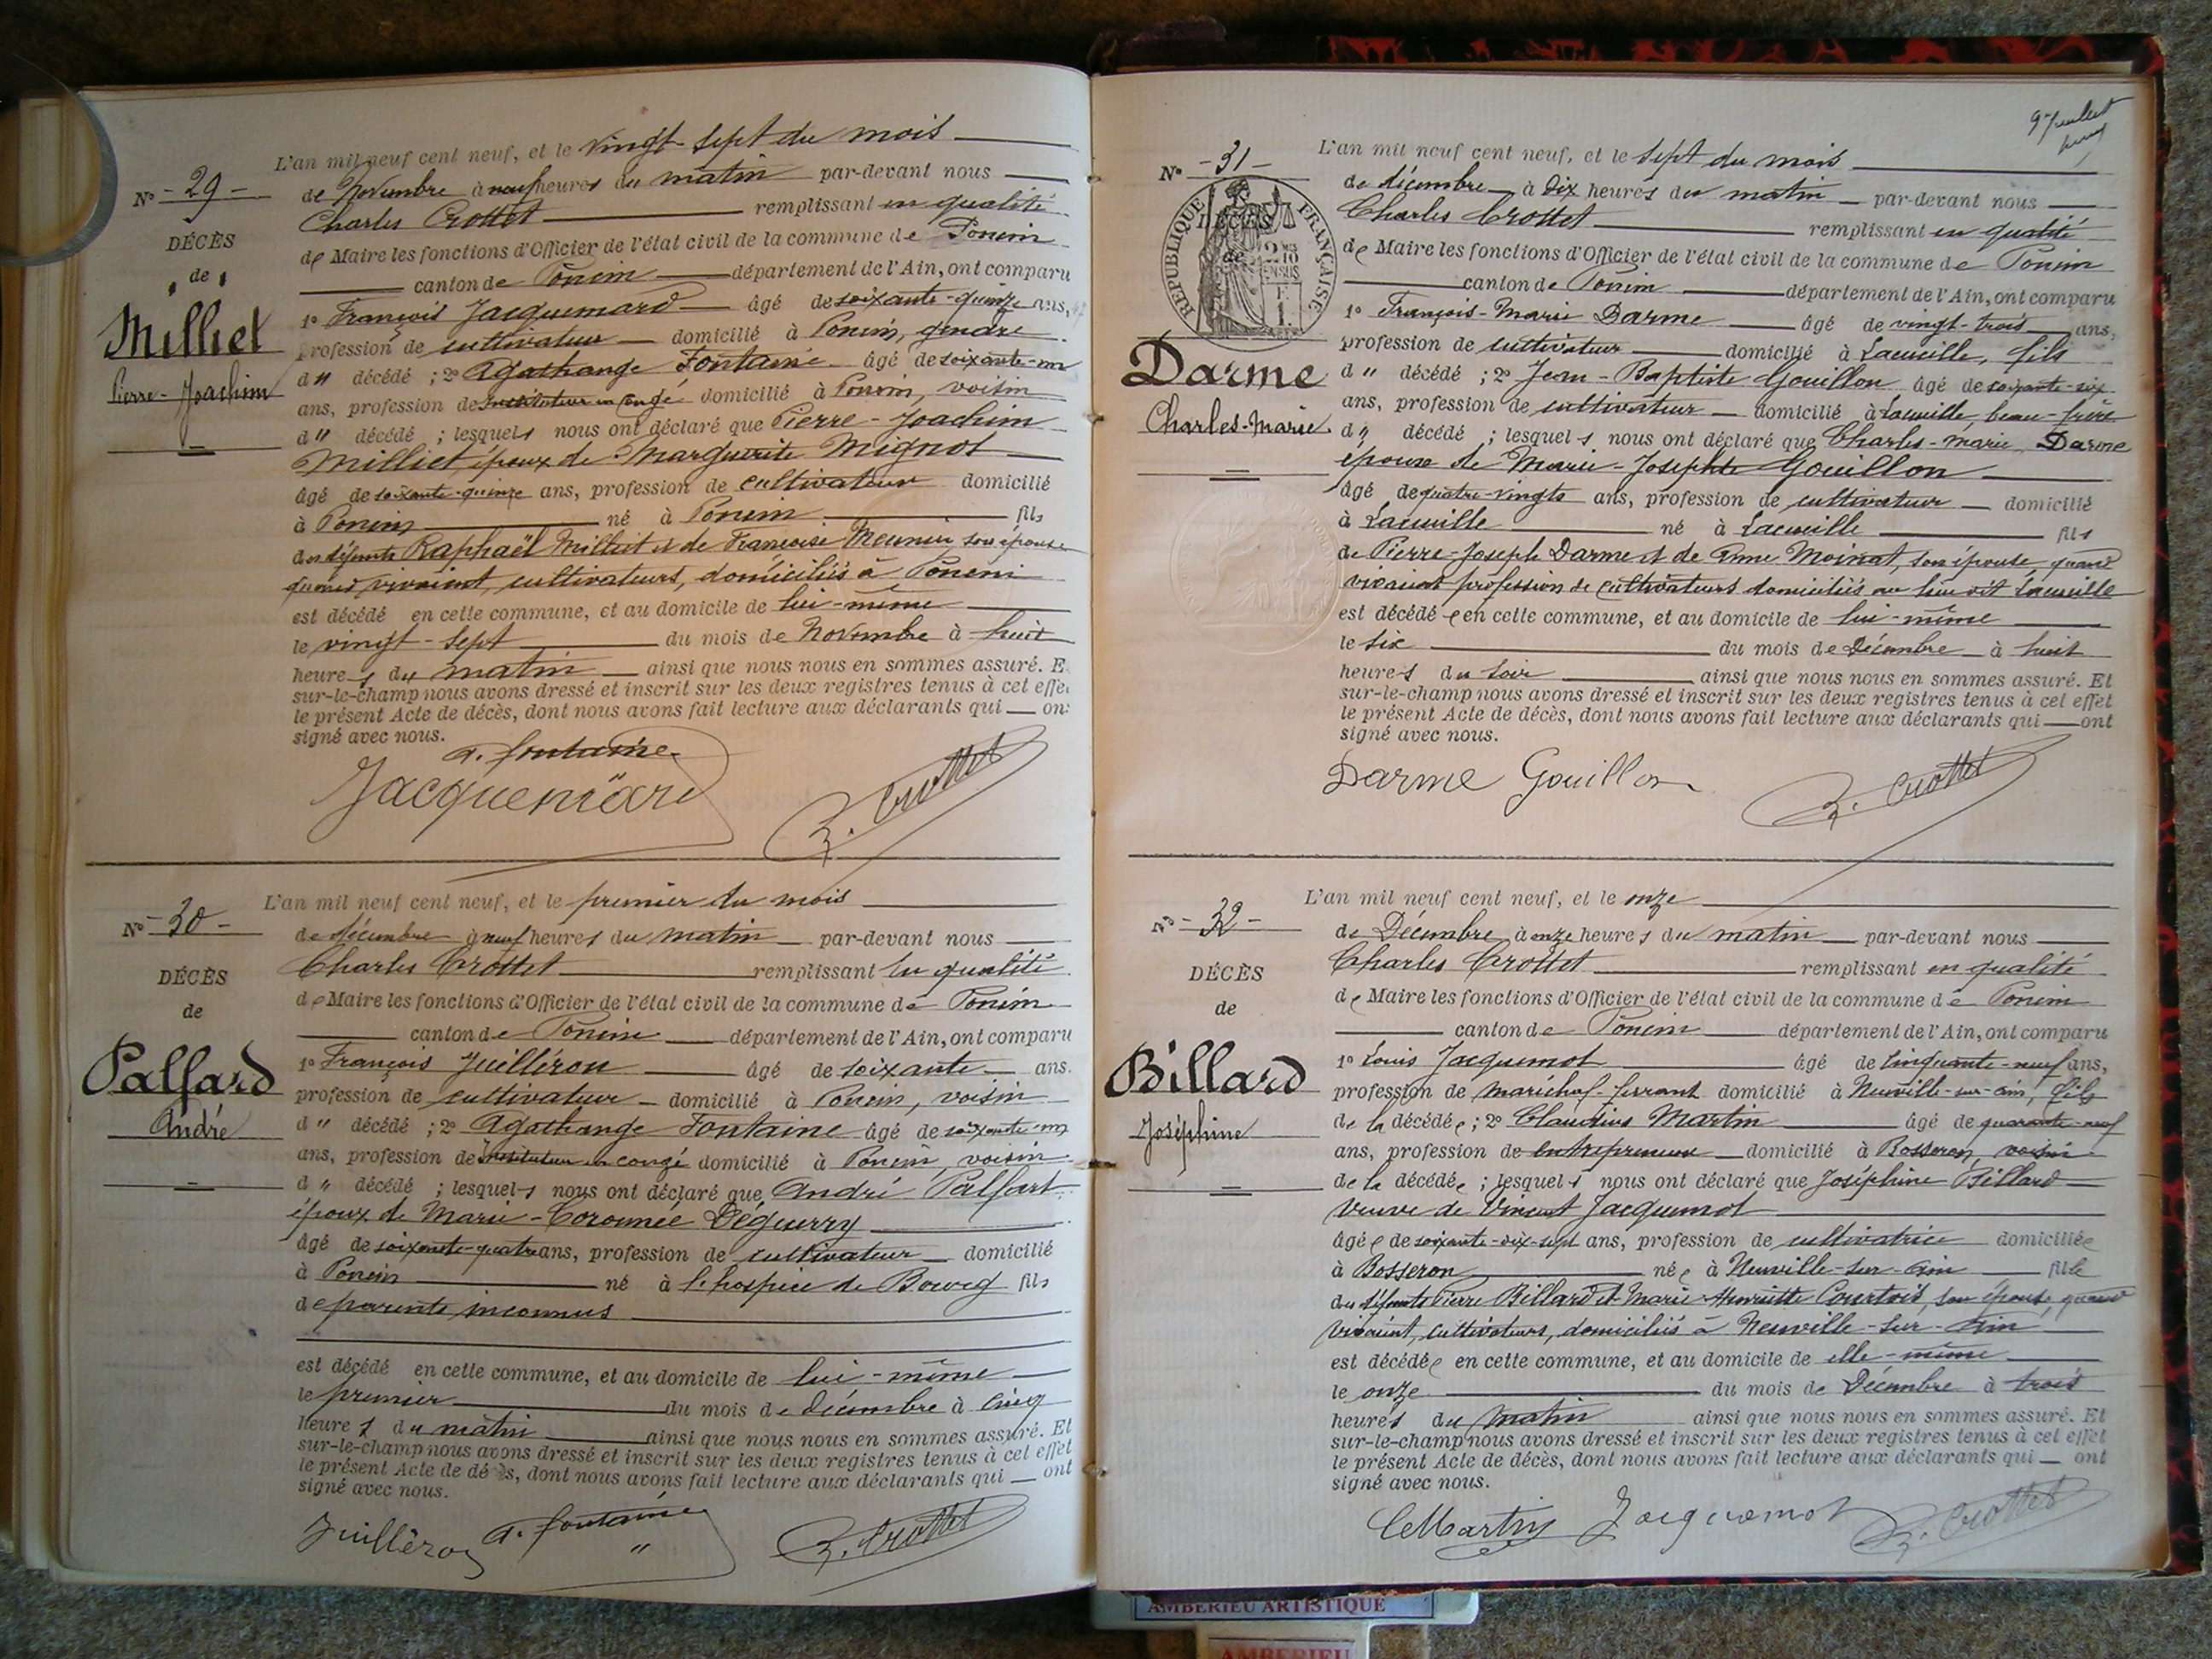 N° - 29 -
DÉCÈS
de
Milliet
Pierre-Joachim
L'an mil neuf cent neuf, et le vingt-sept du mois
de Novembre à neuf heures du matin par-devant nous
Charles Crottet remplissant en qualité
de Maire les fonctions d'Officier de l'état civil de la commune de Poncin
canton de Poncin département de l'Ain, ont comparu
1° François Jacquemard âgé de soixante-quinze ans,
profession de cultivateur domicilié à Poncin, gendre
d" décédé ; 2° Agathange Fontaine âgé de soixante-un
ans, profession de Instituteur en congé domicilié à Poncin, voisin
d" décédé ; lesquels nous ont déclaré que Pierre-Joachim
Milliet époux de Marguerite Mignot
âgé de soixante-quinze ans, profession de cultivateur domicilié
à Poncin né à Poncin fils
des défunts Raphaël Milliet et de Françoise Meunier, son épouse
quand vivaient, cultivateurs, domiciliés à Poncin
est décédé en cette commune, et au domicile de lui-même
le vingt-sept du mois de Novembre à huit
heures du matin ainsi que nous nous en sommes assuré. E
sur-le-champ nous avons dressé et inscrit sur les deux registres tenus à cet effe
le présent Acte de décès, dont nous avons fait lecture aux déclarants qui on
signé avec nous.
a. fontaine
Jacquemard
C. Crottet
N° - 30 -
DÉCÈS
de
Palfard
André
L'an mil neuf cent neuf, et le premier du mois
de décembre à neuf heures du matin par-devant nous
Charles Crottet remplissant en qualité
de Maire les fonctions d'Officier de l'état civil de la commune de Poncin
canton de Poncin département de l'Ain, ont comparu
1° François Juilléron âgé de soixante ans.
profession de cultivateur domicilié à Poncin, voisin
d" décédé ; 2° Agathange Fontaine âgé de soixante-un
ans, profession de Instituteur en congé domicilié à Poncin, voisin
d" décédé ; lesquels nous ont déclaré que André Palfart
époux de Marie-Coronnée Déguerry
âgé de soixante-quatre ans, profession de cultivateur domicilié
à Poncin né à l'hospice de Bourg fils
de parents inconnus
est décédé en cette commune, et au domicile de lui-même
le premier du mois de décembre à cinq
heures du matin ainsi que nous nous en sommes assuré. Et
sur-le-champ nous avons dressé et inscrit sur les deux registres tenus à cet effet
le présent Acte de décès, dont nous avons fait lecture aux déclarants qui ont
signé avec nous.
Juilléron a. fontaine C. Crottet
N° - 31 -
RÉPUBLIQUE FRANÇAISE
DÉCÈS
de
Darme
Charles-Marie
L'an mil neuf cent neuf, et le sept du mois
de décembre à dix heures du matin par-devant nous
Charles Crottet remplissant en qualité
de Maire les fonctions d'Officier de l'état civil de la commune de Poncin
canton de Poncin département de l'Ain, ont comparu
1° François-Marie Darme âgé de vingt-trois ans,
profession de cultivateur domicilié à Lacueille, fils
d" décédé ; 2° Jean-Baptiste Gouillon âgé de soixante-six
ans, profession de cultivateur domicilié à Lacueille, beau-frère
d" décédé ; lesquels nous ont déclaré que Charles-Marie Darme
époux de Marie-Josephte Gouillon
âgé de quatre-vingts ans, profession de cultivateur domicilié
à Lacueille né à Lacueille fils
de Pierre-Joseph Darme et de Anne Moinat, son épouse quand
vivaient profession de cultivateurs domiciliés au lieu dit Lacueille
est décédé en cette commune, et au domicile de lui-même
le six du mois de Décembre à huit
heures du soir ainsi que nous nous en sommes assuré. Et
sur-le-champ nous avons dressé et inscrit sur les deux registres tenus à cet effet
le présent Acte de décès, dont nous avons fait lecture aux déclarants qui ont
signé avec nous.
Darme Gouillon C. Crottet
N° - 32 -
DÉCÈS
de
Billard
Joséphine
L'an mil neuf cent neuf, et le onze
de Décembre à onze heures du matin par-devant nous
Charles Crottet remplissant en qualité
de Maire les fonctions d'Officier de l'état civil de la commune de Poncin
canton de Poncin département de l'Ain, ont comparu
1° Louis Jacquemot âgé de cinquante-neuf ans,
profession de maréchal-ferrant domicilié à Neuville-sur-ain, fils
de la décédée ; 2° Claudius Martin âgé de quarante-neuf
ans, profession de entrepreneur domicilié à Bosseron, voisin
de la décédée ; lesquels nous ont déclaré que Joséphine Billard
veuve de Vincent Jacquemot
âgée de soixante-dix-sept ans, profession de cultivatrice domiciliée
à Bosseron née à Neuville-sur-Ain fille
des défunts Pierre Billard et Marie-Henriette Courtois, son épouse, quand
vivaient, cultivateurs, domiciliés à Neuville-sur-Ain
est décédée en cette commune, et au domicile de elle-même
le onze du mois de Décembre à trois
heures du matin ainsi que nous nous en sommes assuré. Et
sur-le-champ nous avons dressé et inscrit sur les deux registres tenus à cet effet
le présent Acte de décès, dont nous avons fait lecture aux déclarants qui ont
signé avec nous.
Cl Martin Jacquemot C. Crottet
AMBERIEU ARTISTIQUE
AMBERIEU